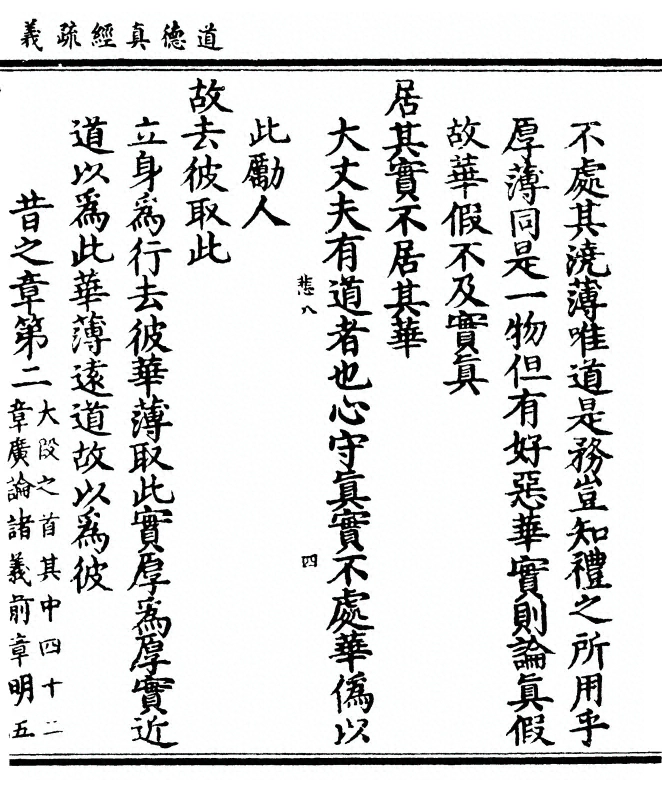 道德真經疏義
不處其澆薄唯道是務豈知禮之所用乎
厚薄同是一物但有好惡華實則論真假
故華假不及實真
居其實不居其華
大丈夫有道者也心守真實不處華偽以
悲八
四
此勵人
故去彼取此
立身為行去彼華薄取此實厚為厚實近
道以為此華薄遠道故以為彼
昔之章第二
大段之首其中四十二
章廣論諸義前章明五